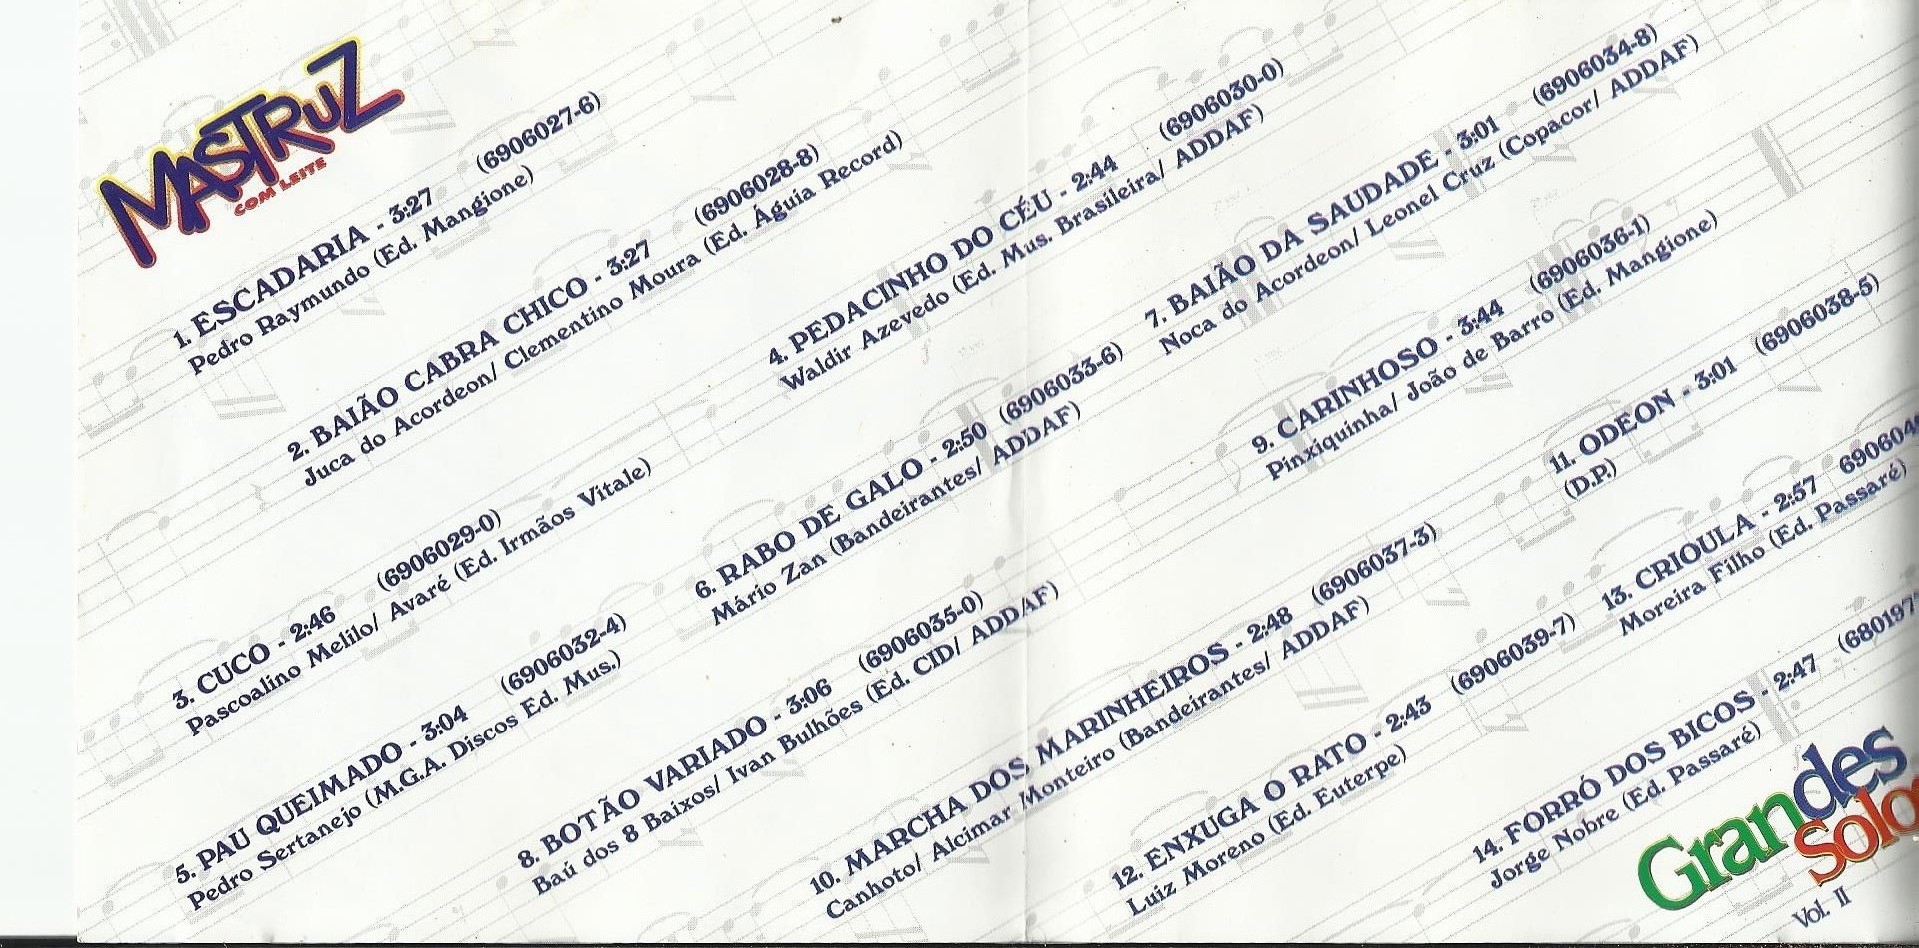 MASTRUZ
COM LEITE
1. ESCADARIA - 3:27 (6906027-6)
Pedro Raymundo (Ed. Mangione)
2. BAIÃO CABRA CHICO - 3:27 (6906028-8)
Juca do Acordeon/ Clementino Moura (Ed. Águia Record)
3. CUCO - 2:46 (6906029-0)
Pascoalino Melilo/ Avaré (Ed. Irmãos Vitale)
4. PEDACINHO DO CÉU - 2:44 (6906030-0)
Waldir Azevedo (Ed. Mus. Brasileira/ ADDAF)
5. PAU QUEIMADO - 3:04 (6906032-4)
Pedro Sertanejo (M.G.A. Discos Ed. Mus.)
6. RABO DE GALO - 2:50 (6906033-6)
Mário Zan (Bandeirantes/ ADDAF)
7. BAIÃO DA SAUDADE - 3:01 (6906034-8)
Noca do Acordeon/ Leonel Cruz (Copacor/ ADDAF)
8. BOTÃO VARIADO - 3:06 (6906035-0)
Baú dos 8 Baixos/ Ivan Bulhões (Ed. CID/ ADDAF)
9. CARINHOSO - 3:44 (6906036-1)
Pinxiquinha/ João de Barro (Ed. Mangione)
10. MARCHA DOS MARINHEIROS - 2:48 (6906037-3)
Canhoto/ Alcimar Monteiro (Bandeirantes/ ADDAF)
11. ODEON - 3:01 (6906038-5)
(D.P.)
12. ENXUGA O RATO - 2:43 (6906039-7)
Luiz Moreno (Ed. Euterpe)
13. CRIOULA - 2:57
Moreira Filho (Ed. Passaré)
14. FORRÓ DOS BICOS - 2:47
Jorge Nobre (Ed. Passaré)
Grandes
Vol. II